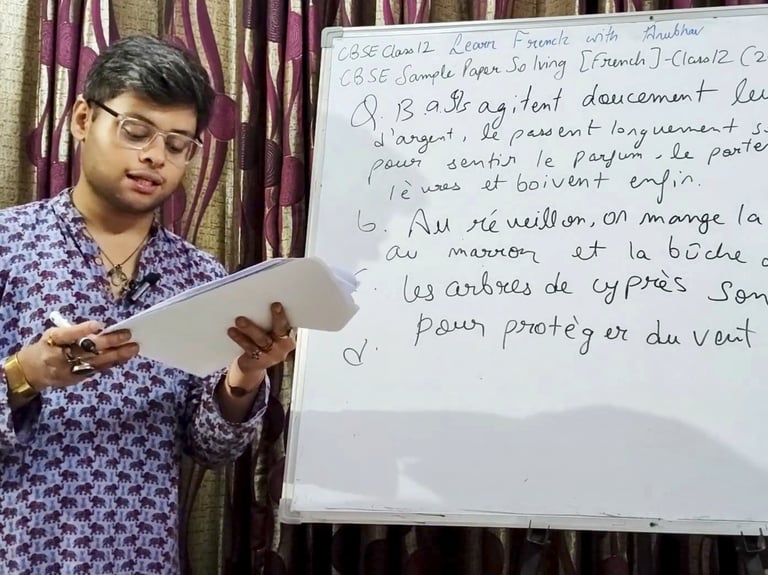 CBSE Class 12 Learn French with Anubhav
CBSE Sample Paper Solving [French]-Class 12 (2
Q. B. a. Ils agitent doucement leu
d'argent, le passent longuement s
pour sentir le parfum, le porte
lèvres et boivent enfin.
b. Au réveillon, on mange la
au marron et la bûche d
les arbres de cyprès son
pour protéger du vent
d.